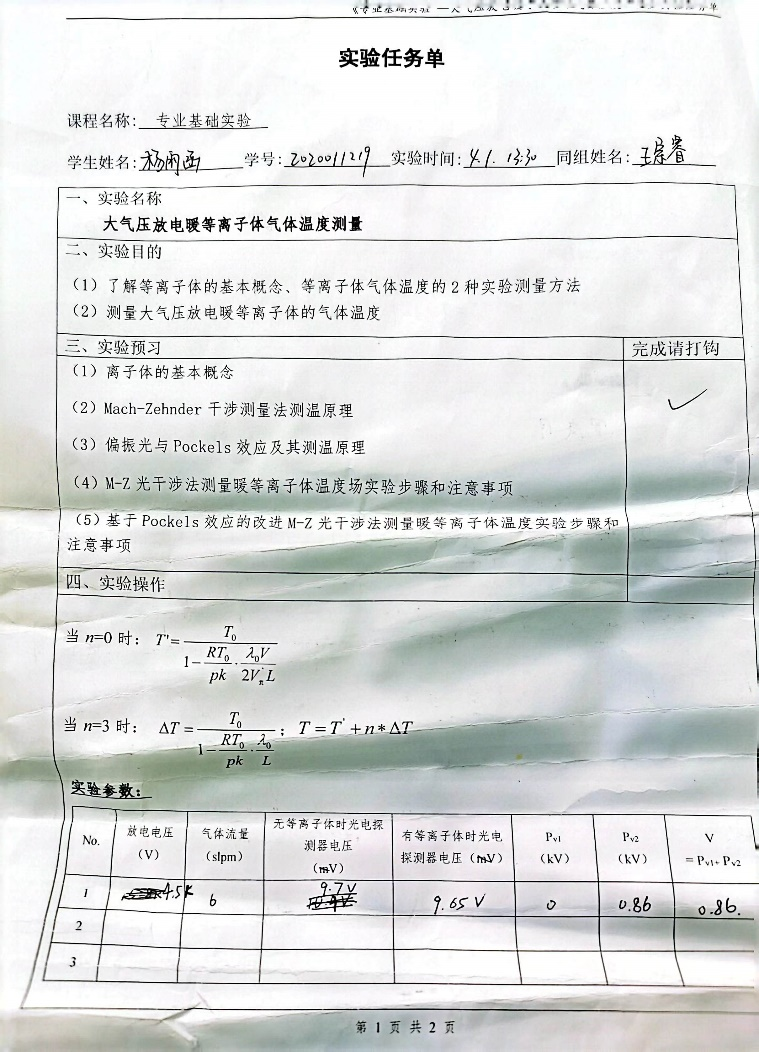 实验任务单
课程名称: 专业基础实验
学生姓名: 杨雨函 学号: 2020011219 实验时间: 4.1. 13:30 同组姓名: 王宗睿
一、实验名称
大气压放电暖等离子体气体温度测量
二、实验目的
(1) 了解等离子体的基本概念、等离子体气体温度的2种实验测量方法
(2) 测量大气压放电暖等离子体的气体温度
三、实验预习 完成请打钩
(1) 离子体的基本概念 ✓
(2) Mach-Zehnder 干涉测量法测温原理
(3) 偏振光与Pockels 效应及其测温原理
(4) M-Z 光干涉法测量暖等离子体温度场实验步骤和注意事项
(5) 基于 Pockels 效应的改进 M-Z 光干涉法测量暖等离子体温度实验步骤和
注意事项
四、实验操作
当 n=0 时: T'= T₀ / (1 − (RT₀/pk)·(λ₀V/2VπL))
当 n=3 时: ΔT = T₀ / (1 − (RT₀/pk)·(λ₀/L)); T = T' + n * ΔT
实验参数:
No. 放电电压 (V) 气体流量 (slpm) 无等离子体时光电探测器电压 (mV) 有等离子体时光电探测器电压 (mV) Pv1 (kV) Pv2 (kV) V = Pv1+ Pv2
1 4.5k 6 9.7V 9.65 V 0 0.86 0.86.
2
3
第 1 页 共 2 页